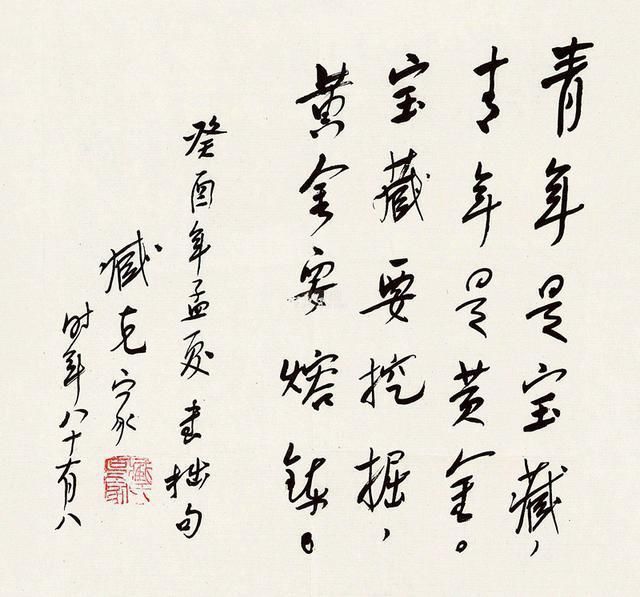 青年是宝藏，
青年是黄金。
宝藏要挖掘，
黄金要熔铸。
癸酉年孟夏 书拙句
臧克家
时年八十有八